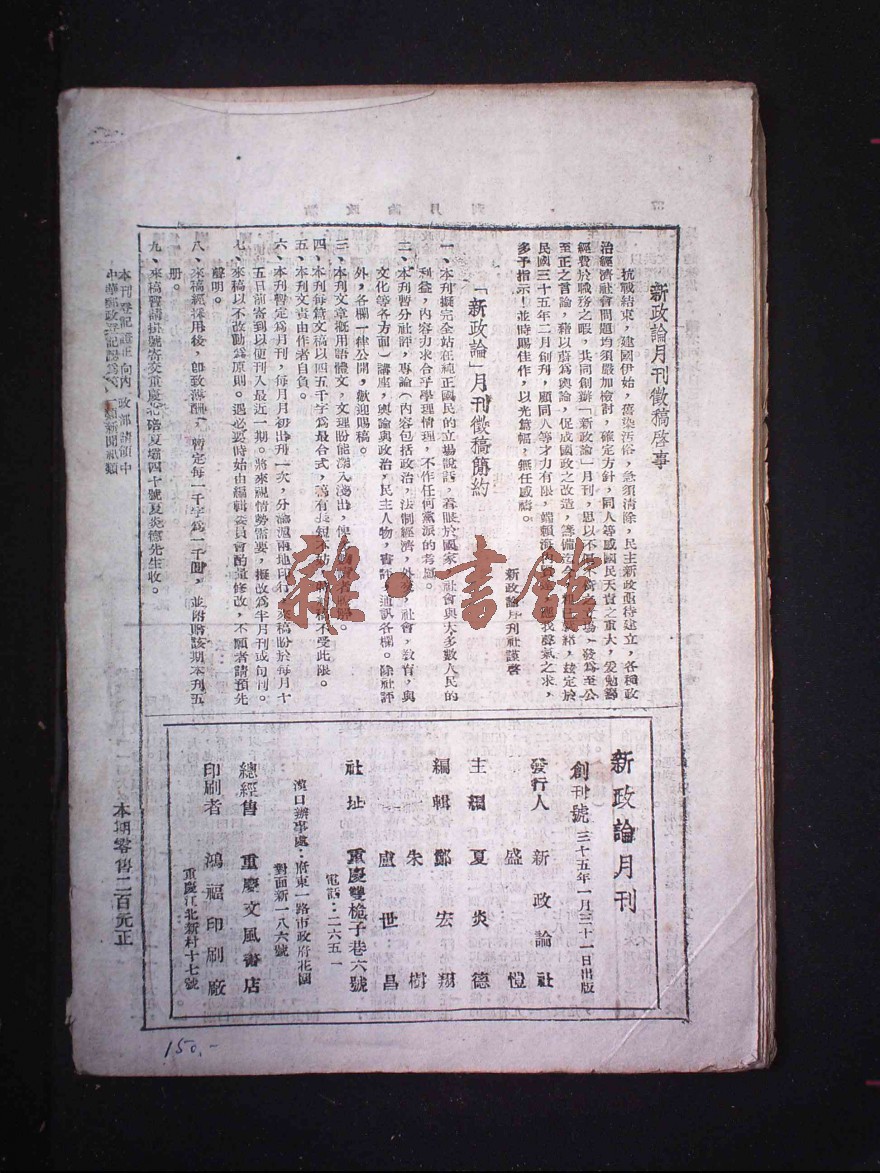 新政論月刊徵稿啓事
抗戰結束，建國伊始，舊染汚俗，急須清除，民主新政亟待建立，各種政
治經濟社會問題均須嚴加檢討，確定方針，同人等感國民天責之重大，爰勉籌
經費於職務之暇，共同創辦「新政論」月刊，思以不 塲，發爲至公
至正之言論，藉以蔚爲輿論，促成國政之改造，籌備迄今 緒，茲定於
民國三十五年二月創刊，顧同人等才力有限，端賴海內 聲氣之求，
多予指示！並時賜佳作，以光篇幅，無任感禱。
新政論月刊社謹啓
「新政論」月刊徵稿簡約
一、本刊擬完全站在純正國民的立場說話，着眼於國家 社會與大多數人民的
利益，內容力求合乎學理情理，不作任何黨派的 。
二、本刊暫分社評，專論（內容包括政治，法制經濟，外交，社會，敎育，與
文化等各方面）講座，輿論與政治，民主人物，書評，通訊各欄。除社評
外，各欄一律公開，歡迎賜稿。
三、本刊文章概用語體文，文理盼能深入淺出，
四、本刊每篇文稿以四五千字爲最合式， 有長短不 稿不受此限。
五、本刊文責由作者自負。
六、本刊暫定爲月刊，每月月初出刊一次，分渝滬兩地印行，來稿盼於每月十
五日前寄到以便刊入最近一期。將來視情勢需要，擬改爲半月刊或旬刊。
七、來稿以不改動爲原則。遇必要時始由編輯委員會酌量修改，不願者請預先
聲明。
八、來稿經採用後，卽致薄酬， 暫定每一千字爲一千圓，並附贈該期本刊五
册。
九、來稿暫請掛號寄交重慶北碚夏壩四十號夏炎德先生收。
本刊登記證正向內政部請領中
中華郵政登記認爲第 類新聞紙類
新政論月刊
創刊號 三十五年一月三十一日出版
發行人 新政論社
盛愷
主編 夏炎德
編輯 鄭宏翔
朱一樹
盧世昌
社址 重慶雙桅子巷六號
電話：二六五一
漢口辦事處：府東一路市政府花園
對面新一八六號
總經售 重慶文風書店
印刷者 鴻福印刷廠
重慶江北新村十七號
本期零售二百元正
150.-
雜·書館